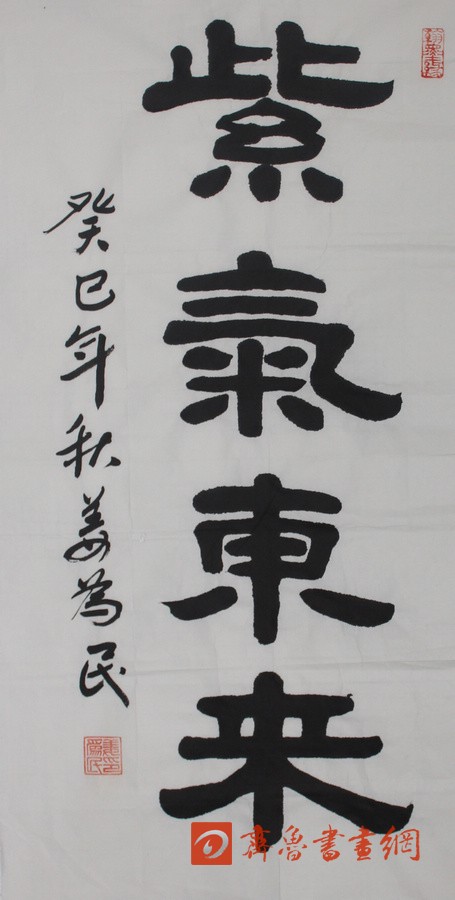 紫氣東来
癸巳年秋姜為民
齊魯書畫網